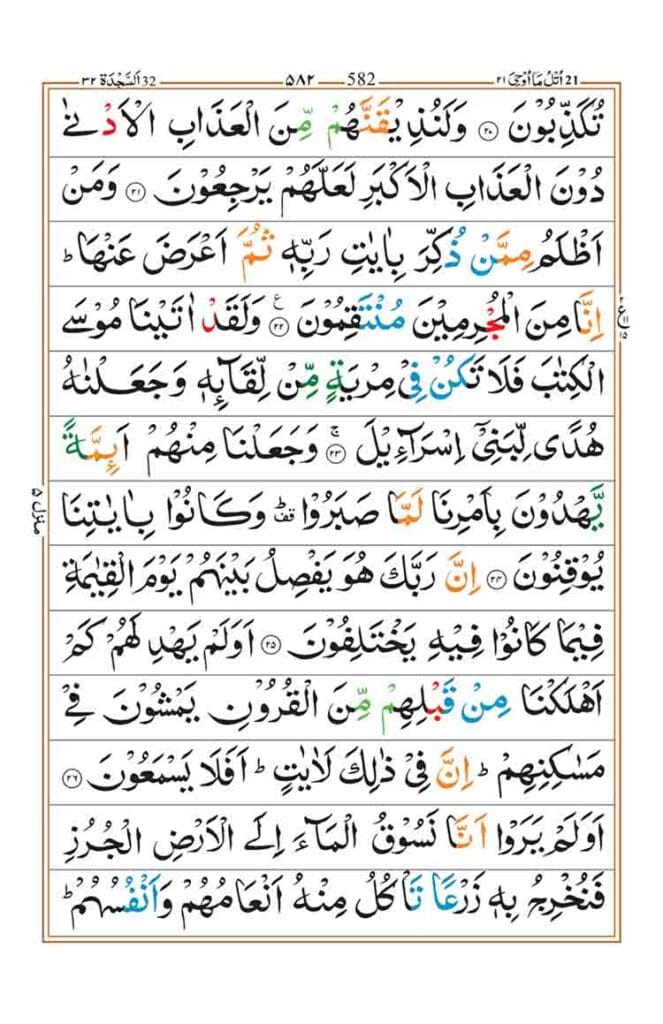 21 اُتْلُ مَاۤ اُوْحِیَ ٢١ 582 ۵۸۲ 32 اَلسَّجْدَة ٣٢
تُكَذِّبُوْنَ ۝٢٠ وَلَنُذِیْقَنَّهُمْ مِّنَ الْعَذَابِ الْاَدْنٰی
دُوْنَ الْعَذَابِ الْاَكْبَرِ لَعَلَّهُمْ یَرْجِعُوْنَ ۝٢١ وَمَنْ
اَظْلَمُ مِمَّنْ ذُكِّرَ بِاٰیٰتِ رَبِّهٖ ثُمَّ اَعْرَضَ عَنْهَا ؕ
اِنَّا مِنَ الْمُجْرِمِیْنَ مُنْتَقِمُوْنَ ۝٢٢ وَلَقَدْ اٰتَیْنَا مُوْسَی
الْكِتٰبَ فَلَا تَكُنْ فِیْ مِرْیَةٍ مِّنْ لِّقَآىِٕهٖ وَجَعَلْنٰهُ
هُدًی لِّبَنِیْۤ اِسْرَآءِیْلَ ۝٢٣ وَجَعَلْنَا مِنْهُمْ اَىِٕمَّةً
یَّهْدُوْنَ بِاَمْرِنَا لَمَّا صَبَرُوْا ۫ؕ وَكَانُوْا بِاٰیٰتِنَا
یُوْقِنُوْنَ ۝٢٤ اِنَّ رَبَّكَ هُوَ یَفْصِلُ بَیْنَهُمْ یَوْمَ الْقِیٰمَةِ
فِیْمَا كَانُوْا فِیْهِ یَخْتَلِفُوْنَ ۝٢٥ اَوَلَمْ یَهْدِ لَهُمْ كَمْ
اَهْلَكْنَا مِنْ قَبْلِهِمْ مِّنَ الْقُرُوْنِ یَمْشُوْنَ فِیْ
مَسٰكِنِهِمْ ؕ اِنَّ فِیْ ذٰلِكَ لَاٰیٰتٍ ؕ اَفَلَا یَسْمَعُوْنَ ۝٢٦
اَوَلَمْ یَرَوْا اَنَّا نَسُوْقُ الْمَآءَ اِلَی الْاَرْضِ الْجُرُزِ
فَنُخْرِجُ بِهٖ زَرْعًا تَاْكُلُ مِنْهُ اَنْعَامُهُمْ وَاَنْفُسُهُمْ ؕ
منزل ۵